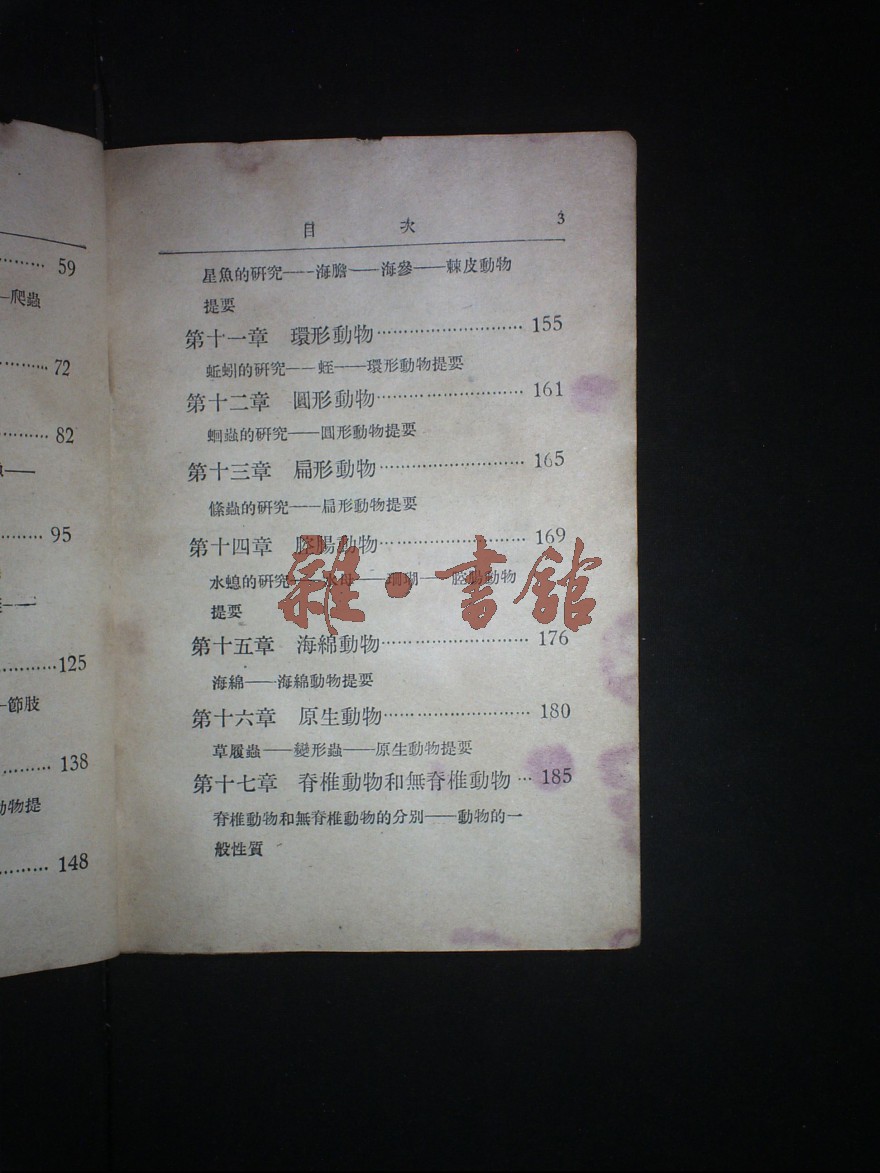 59
爬蟲
72
82
95
125
節肢
138
動物提
148
目 次 3
星魚的研究——海膽——海參——棘皮動物
提要
第十一章 環形動物 155
蚯蚓的研究——蛭——環形動物提要
第十二章 圓形動物 161
蛔蟲的研究——圓形動物提要
第十三章 扁形動物 165
絛蟲的研究——扁形動物提要
第十四章 腔腸動物 169
水螅的研究——水母——珊瑚——腔腸動物
提要
第十五章 海綿動物 176
海綿——海綿動物提要
第十六章 原生動物 180
草履蟲——變形蟲——原生動物提要
第十七章 脊椎動物和無脊椎動物 185
脊椎動物和無脊椎動物的分別——動物的一
般性質
雜·書館